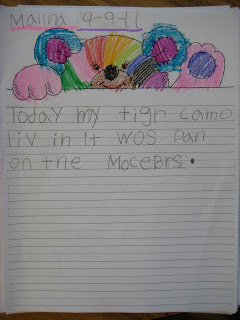 Malina 9-9-11
Today my tigr camo
liv in It wos pan
on the Mocebrs.